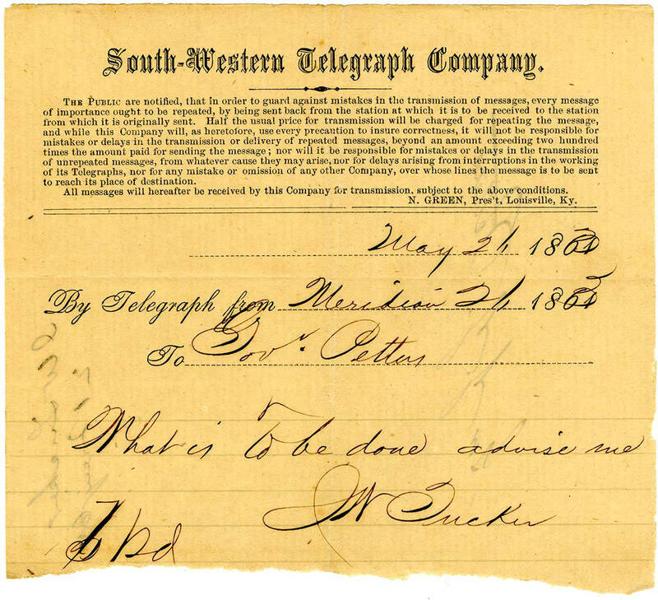 South-Western Telegraph Company.
THE PUBLIC are notified, that in order to guard against mistakes in the transmission of messages, every message
of importance ought to be repeated, by being sent back from the station at which it is to be received to the station
from which it is originally sent. Half the usual price for transmission will be charged for repeating the message,
and while this Company will, as heretofore, use every precaution to insure correctness, it will not be responsible for
mistakes or delays in the transmission or delivery of repeated messages, beyond an amount exceeding two hundred
times the amount paid for sending the message; nor will it be responsible for mistakes or delays in the transmission
of unrepeated messages, from whatever cause they may arise, nor for delays arising from interruptions in the working
of its Telegraphs, nor for any mistake or omission of any other Company, over whose lines the message is to be sent
to reach its place of destination.
All messages will hereafter be received by this Company for transmission, subject to the above conditions.
N. GREEN, Pres't, Louisville, Ky.
May 26 1863
By Telegraph from Meridian 26 1863
To Gov. Pettus
What is to be done advise me
JW Tucker